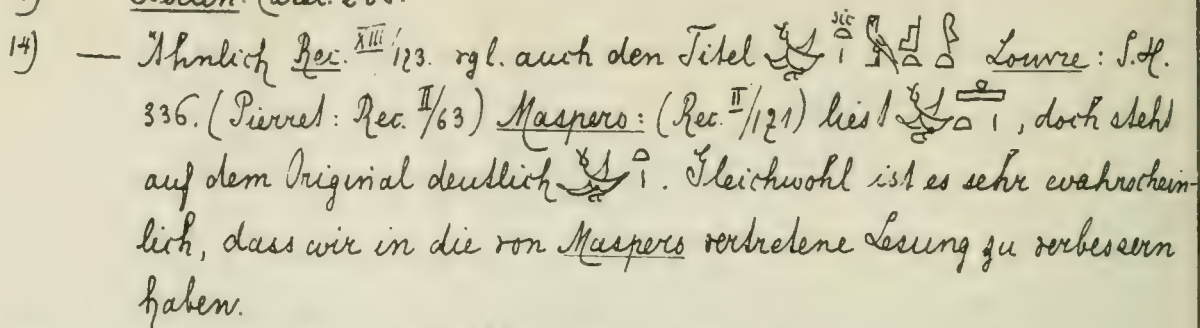 14) — Ähnlich Rec. XIII/123. vgl. auch den Titel sic Louvre: S.H.
336. (Pierret: Rec. II/63) Maspero: (Rec. II/121) liest , doch steht
auf dem Original deutlich . Gleichwohl ist es sehr wahrschein-
lich, dass wir in die von Maspero vertretene Lesung zu verbessern
haben.